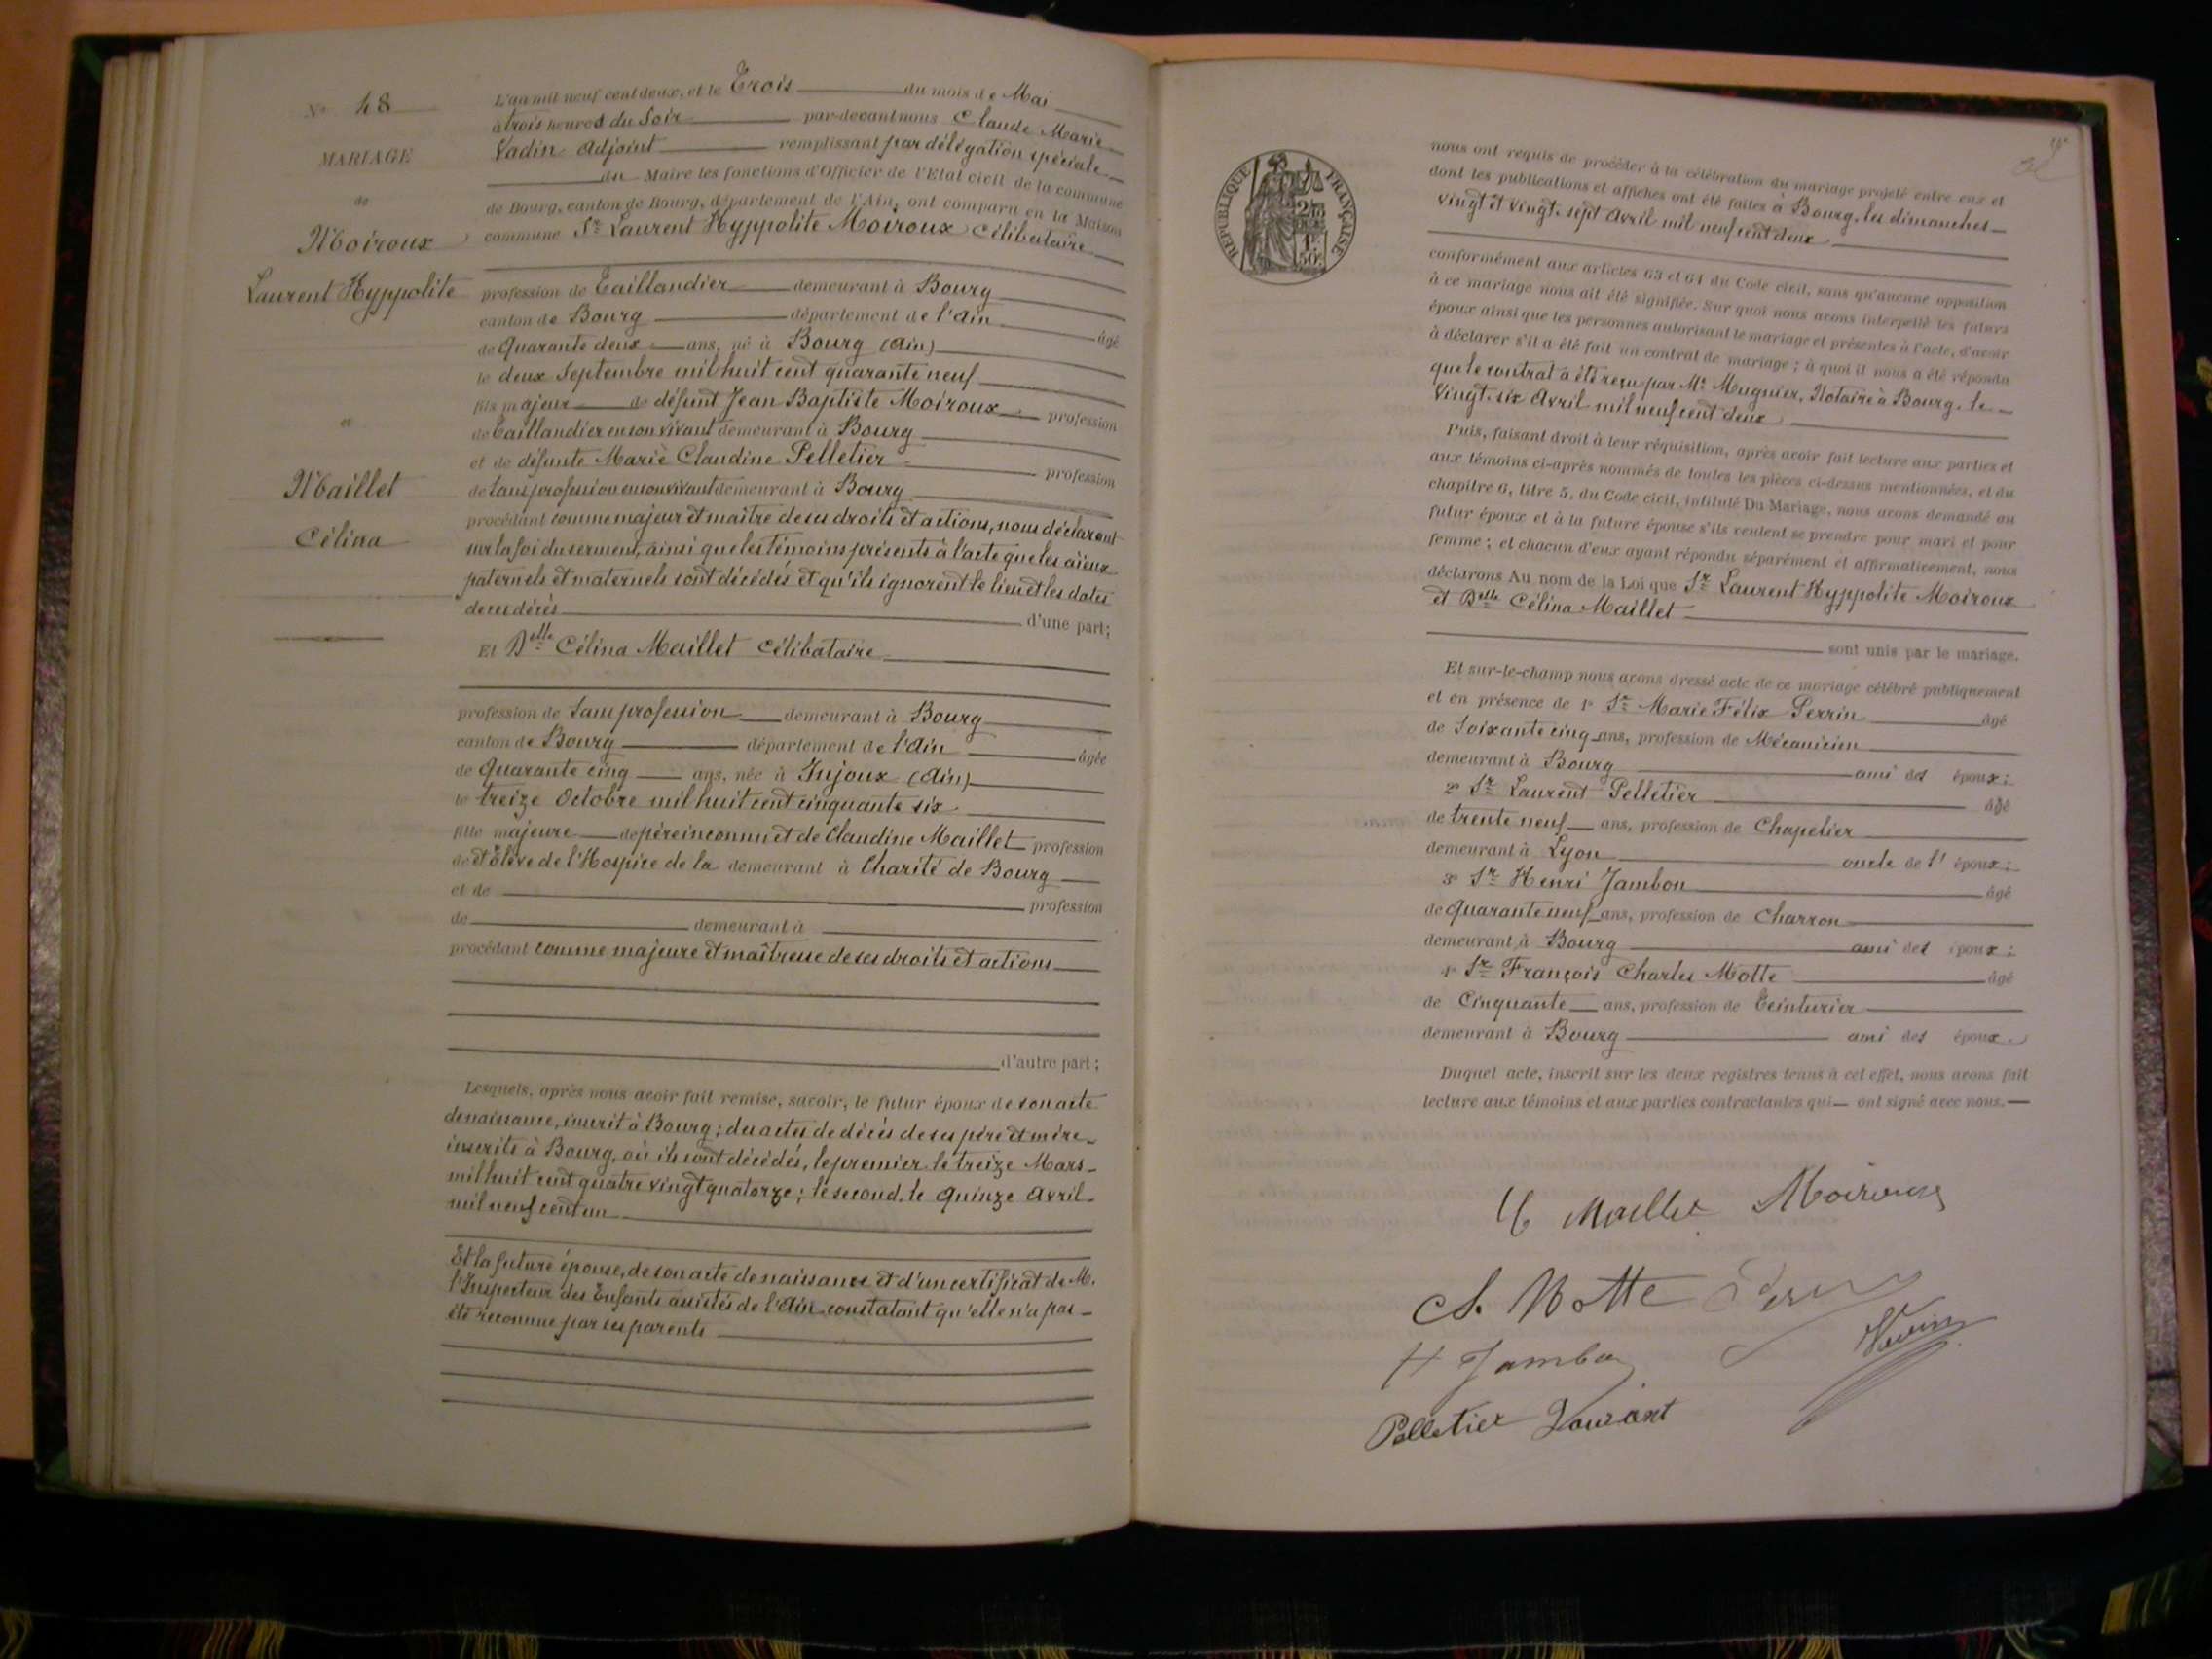 N° 48
MARIAGE
de
Moiroux
Laurent Hyppolite
et
Maillet
Célina
L'an mil neuf cent deux, et le Trois du mois de Mai
à trois heures du Soir par-devant nous Claude Marie
Vadin Adjoint remplissant par délégation spéciale
du Maire les fonctions d'Officier de l'Etat civil de la commune
de Bourg, canton de Bourg, département de l'Ain, ont comparu en la Maison
commune Sr Laurent Hyppolite Moiroux célibataire
profession de Taillandier demeurant à Bourg
canton de Bourg département de l'Ain âgé
de Quarante deux ans, né à Bourg (Ain)
le deux Septembre mil huit cent quarante neuf
fils majeur de défunt Jean Baptiste Moiroux profession
de Taillandier en son vivant demeurant à Bourg
et de défunte Marie Claudine Pelletier profession
de sans profession en son vivant demeurant à Bourg
procédant comme majeur et maître de ses droits et actions, nous déclarant
sur la foi du serment, ainsi que les témoins présents à l'acte que les aïeux
paternels et maternels sont décédés et qu'ils ignorent le lieu et les dates
de ces décès d'une part;
Et Delle Célina Maillet célibataire
profession de Sans profession demeurant à Bourg
canton de Bourg département de l'Ain âgée
de Quarante cinq ans, née à Injoux (Ain)
le treize Octobre mil huit cent cinquante six
fille majeure de père inconnu et de Claudine Maillet profession
de et Elève de l'Hospice de la demeurant à Charité de Bourg
et de profession
de demeurant à
procédant comme majeure et maîtresse de ses droits et actions
d'autre part;
Lesquels, après nous avoir fait remise, savoir, le futur époux de son acte
de naissance, inscrit à Bourg; des actes de décès de ses père et mère
inscrits à Bourg, où ils sont décédés, le premier le treize Mars
mil huit cent quatre vingt quatorze; le second, le quinze Avril
mil neuf cent un
Et la future épouse, de son acte de naissance et d'un certificat de M.
l'Inspecteur des Enfants assistés de l'Ain constatant qu'elle n'a pas
été reconnue par ses parents
RÉPUBLIQUE FRANÇAISE
nous ont requis de procéder à la célébration du mariage projeté entre eux et
dont les publications et affiches ont été faites à Bourg, les dimanches
vingt et vingt-sept Avril mil neuf cent deux
conformément aux articles 63 et 64 du Code civil, sans qu'aucune opposition
à ce mariage nous ait été signifiée. Sur quoi nous avons interpellé les futurs
époux ainsi que les personnes autorisant le mariage et présentes à l'acte, d'avoir
à déclarer s'il a été fait un contrat de mariage; à quoi il nous a été répondu
que le contrat a été reçu par Me Mugnier, Notaire à Bourg, le
Vingt-six Avril mil neuf cent deux
Puis, faisant droit à leur réquisition, après avoir fait lecture aux parties et
aux témoins ci-après nommés de toutes les pièces ci-dessus mentionnées, et du
chapitre 6, titre 5, du Code civil, intitulé Du Mariage, nous avons demandé au
futur époux et à la future épouse s'ils veulent se prendre pour mari et pour
femme; et chacun d'eux ayant répondu séparément et affirmativement, nous
déclarons Au nom de la Loi que Sr Laurent Hyppolite Moiroux
et Delle Célina Maillet
sont unis par le mariage.
Et sur-le-champ nous avons dressé acte de ce mariage célébré publiquement
et en présence de 1° Sr Marie Félix Perrin âgé
de Soixante cinq ans, profession de Mécanicien
demeurant à Bourg ami des époux;
2° Sr Laurent Pelletier âgé
de trente neuf ans, profession de Chapelier
demeurant à Lyon oncle de l' époux;
3° Sr Henri Jambon âgé
de Quarante neuf ans, profession de Charron
demeurant à Bourg ami des époux;
4° Sr François Charles Motte âgé
de Cinquante ans, profession de Teinturier
demeurant à Bourg ami des époux
Duquel acte, inscrit sur les deux registres tenus à cet effet, nous avons fait
lecture aux témoins et aux parties contractantes qui ont signé avec nous.
Maillet Moiroux
Ch. Motte Perrin
H Jambon
Pelletier Laurent